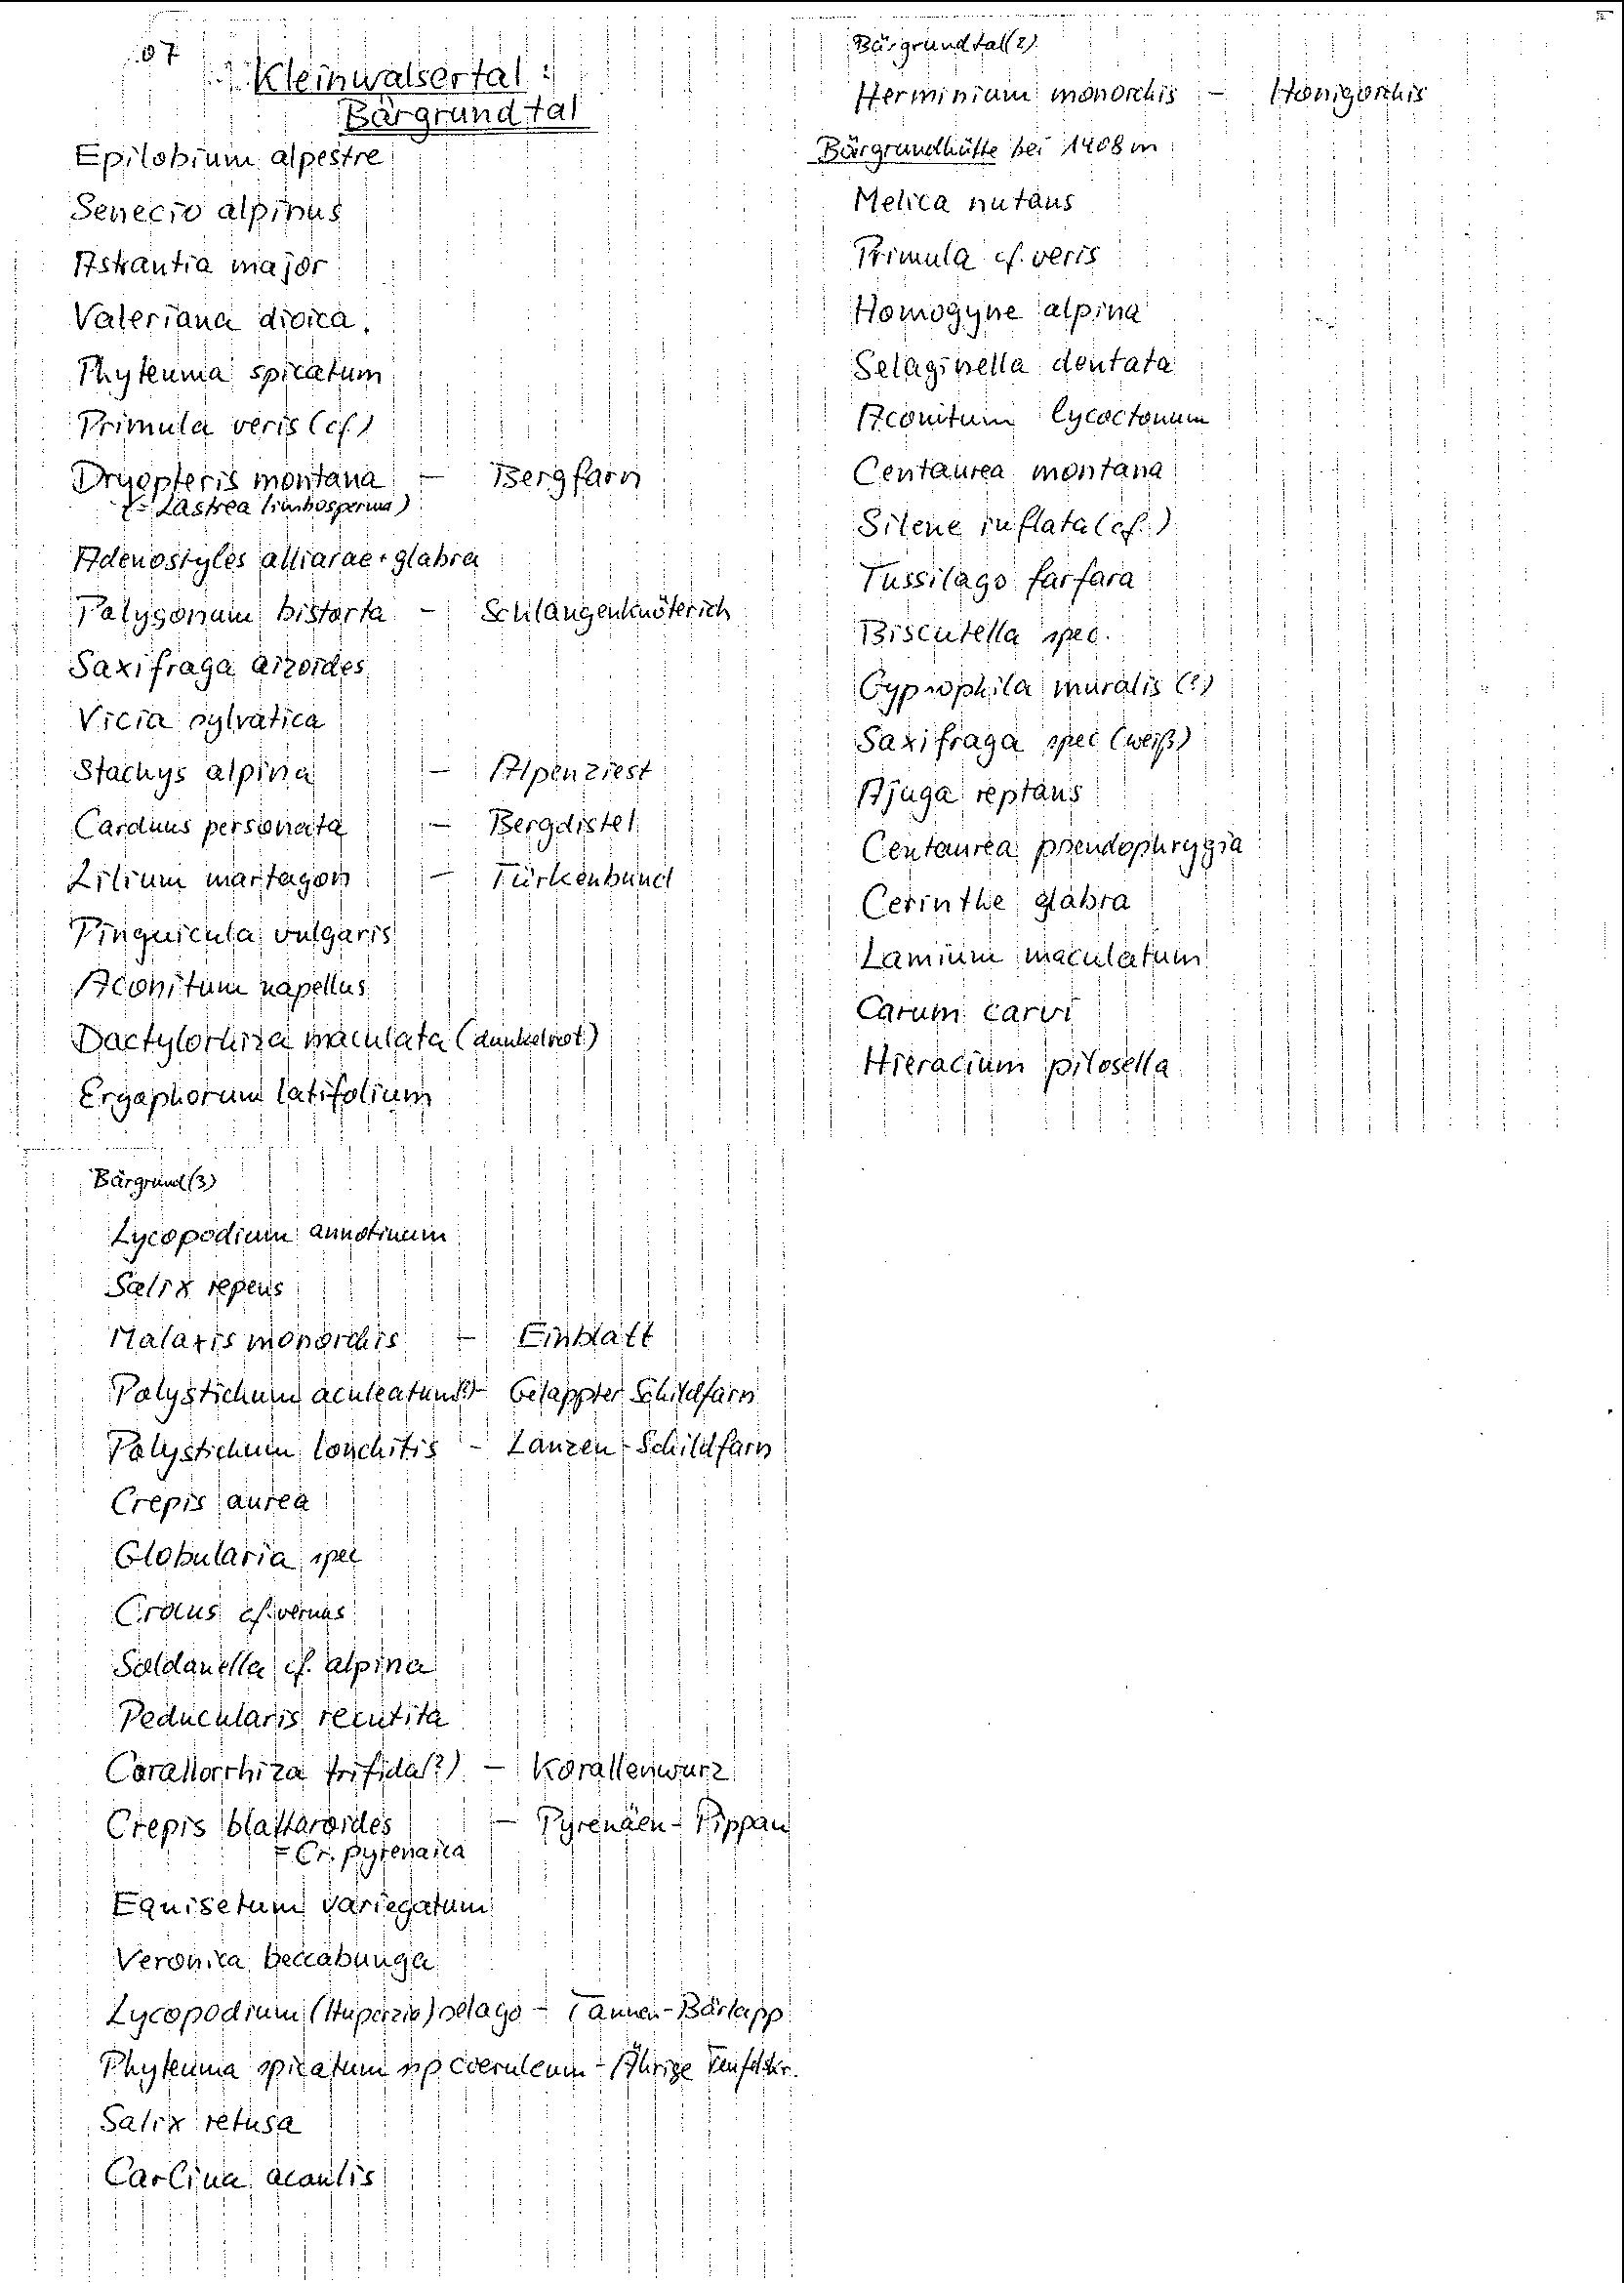 07
Kleinwalsertal:
Bärgrundtal
Epilobium alpestre
Senecio alpinus
Astrantia major
Valeriana dioica.
Phyteuma spicatum
Primula veris (cf)
Dryopteris montana - Bergfarn
(= Lastrea limbosperma)
Adenostyles alliarae + glabra
Polygonum bistorta - Schlangenknöterich
Saxifraga aizoides
Vicia sylvatica
Stachys alpina - Alpenziest
Carduus personata - Bergdistel
Lilium martagon - Türkenbund
Pinguicula vulgaris
Aconitum napellus
Dactylorhiza maculata (dunkelrot)
Ergophorum latifolium
Bärgrundtal (2)
Herminium monorchis - Honigorchis
Bärgrundhütte bei 1408 m
Melica nutans
Primula cf. veris
Homogyne alpina
Selaginella dentata
Aconitum lycoctonum
Centaurea montana
Silene inflata (cf.)
Tussilago farfara
Biscutella spec.
Gypsophila muralis (?)
Saxifraga spec (weiß)
Ajuga reptans
Centaurea pseudophrygia
Cerinthe glabra
Lamium maculatum
Carum carvi
Hieracium pilosella
Bärgrund (3)
Lycopodium annotinum
Salix repens
Malaxis monorchis - Einblatt
Polystichum aculeatum (?) - Gelappter Schildfarn
Polystichum lonchitis - Lanzen-Schildfarn
Crepis aurea
Globularia spec
Crocus cf. vernus
Soldanella cf. alpina
Peducularis recutita
Corallorrhiza trifida (?) - Korallenwurz
Crepis blattaroides - Pyrenäen-Pippau
= Cr. pyrenaica
Equisetum variegatum
Veronica beccabunga
Lycopodium (Huperzia) selago - Tannen-Bärlapp
Phyteuma spicatum sp coeruleum - Ährige Teufelskr.
Salix retusa
Carlina acaulis